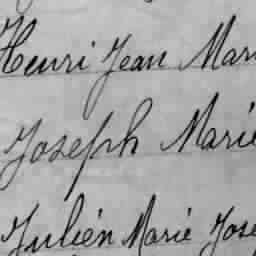 Henri Jean Mari
Joseph Marie
Julién Marie Jose